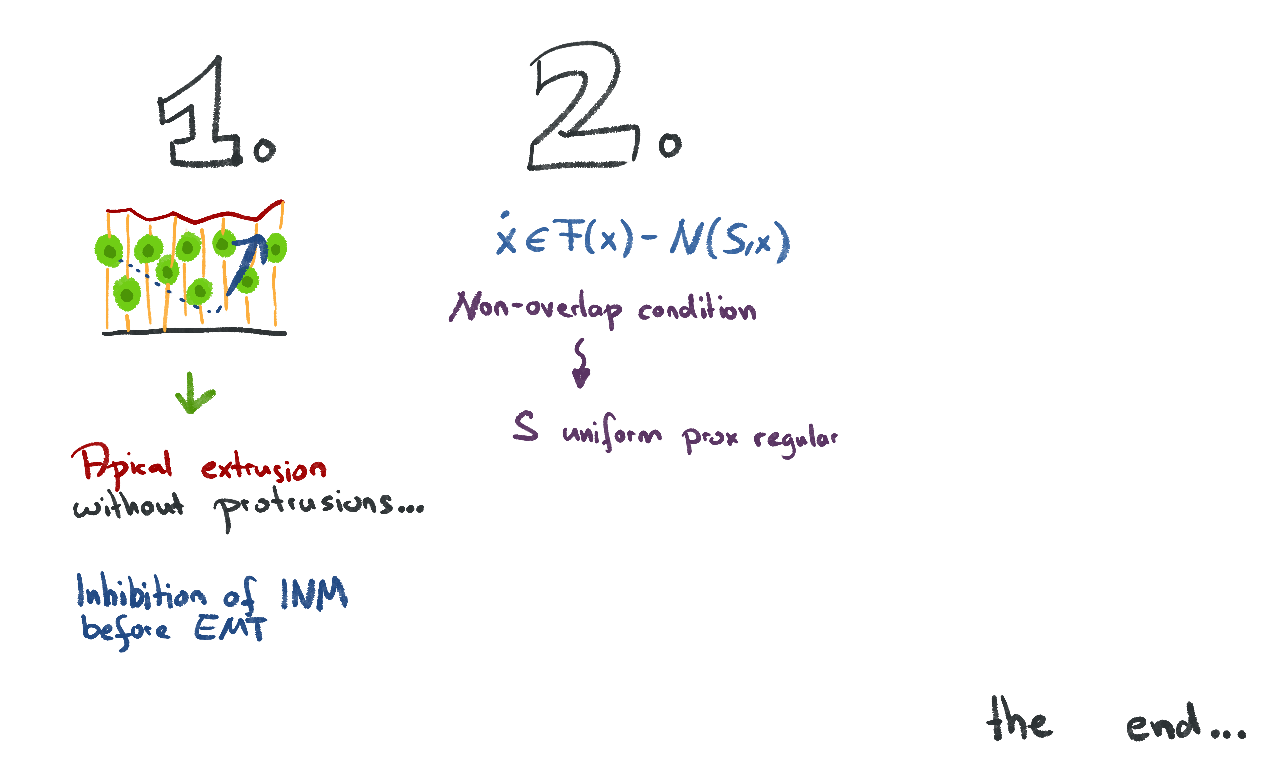 1.
Apical extrusion
without protrusions...
Inhibition of INM
before EMT
2.
ẋ ∈ F(x) - N(S,x)
Non-overlap condition
S uniform prox regular
the end...